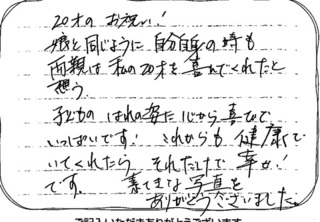 20才のお祝い!
娘と同じように自分自身の時も
両親は私の20才を喜んでくれたと
想う。
子どものはれの姿に心から喜びで
いっぱいです! これからも健康で
いてくれたら それだけで幸せ!
です。 素てきな写真を
ありがとうございました。
ご記入いただきありがとうございます